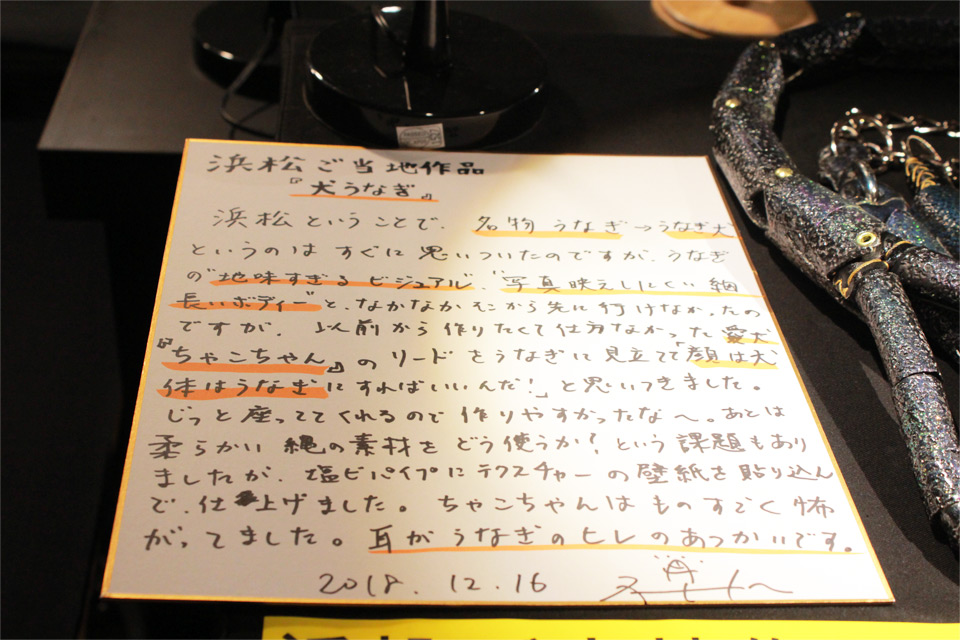 浜松ご当地作品
『犬うなぎ』
浜松ということで、名物うなぎ→うなぎ犬
というのはすぐに思いついたのですが、うなぎ
の"地味すぎるビジュアル"、"写真映えしにくい細
長いボディー"と、なかなかそこから先に行けなかったの
ですが、以前から作りたくて仕方なかった愛犬
『ちゃこちゃん』のリードをうなぎに見立てて「顔は犬
体はうなぎにすればいいんだ!」と思いつきました。
じっと座っててくれるので作りやすかったな〜。あとは
柔らかい縄の素材をどう使うか!という課題もあり
ましたが、塩ビパイプにテクスチャーの壁紙を貼り込ん
で、仕上げました。ちゃこちゃんはものすごく怖
がってました。耳がうなぎのヒレのあつかいです。
2018. 12. 16